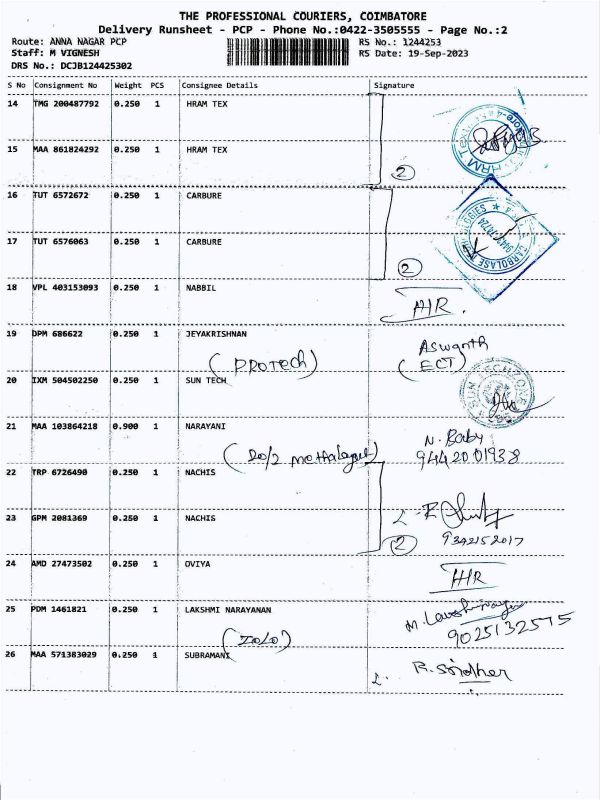 THE PROFESSIONAL COURIERS, COIMBATORE
Delivery Runsheet - PCP - Phone No.:0422-3505555 - Page No.:2
Route: ANNA NAGAR PCP
RS No.: 1244253
Staff: M VIGNESH
RS Date: 19-Sep-2023
DRS No.: DCJB124425302
S No Consignment No Weight PCS Consignee Details Signature
14 TMG 200487792 0.250 1 HRAM TEX
15 MAA 861824292 0.250 1 HRAM TEX
2
16 TUT 6572672 0.250 1 CARBURE
17 TUT 6576063 0.250 1 CARBURE
2
18 VPL 403153093 0.250 1 NABBIL
19 DPM 686622 0.250 1 JEYAKRISHNAN Aswanth
(PROTECH) (ECT)
20 IXM 504502250 0.250 1 SUN TECH
SUN TECHZONE
21 MAA 103864218 0.900 1 NARAYANI N. Baby
9442001938
22 TRP 6726490 0.250 1 NACHIS
23 GPM 2081369 0.250 1 NACHIS
2 9342152017
24 AMD 27473502 0.250 1 OVIYA
25 PDM 1461821 0.250 1 LAKSHMI NARAYANAN
9025132575
26 MAA 571383029 0.250 1 SUBRAMANI